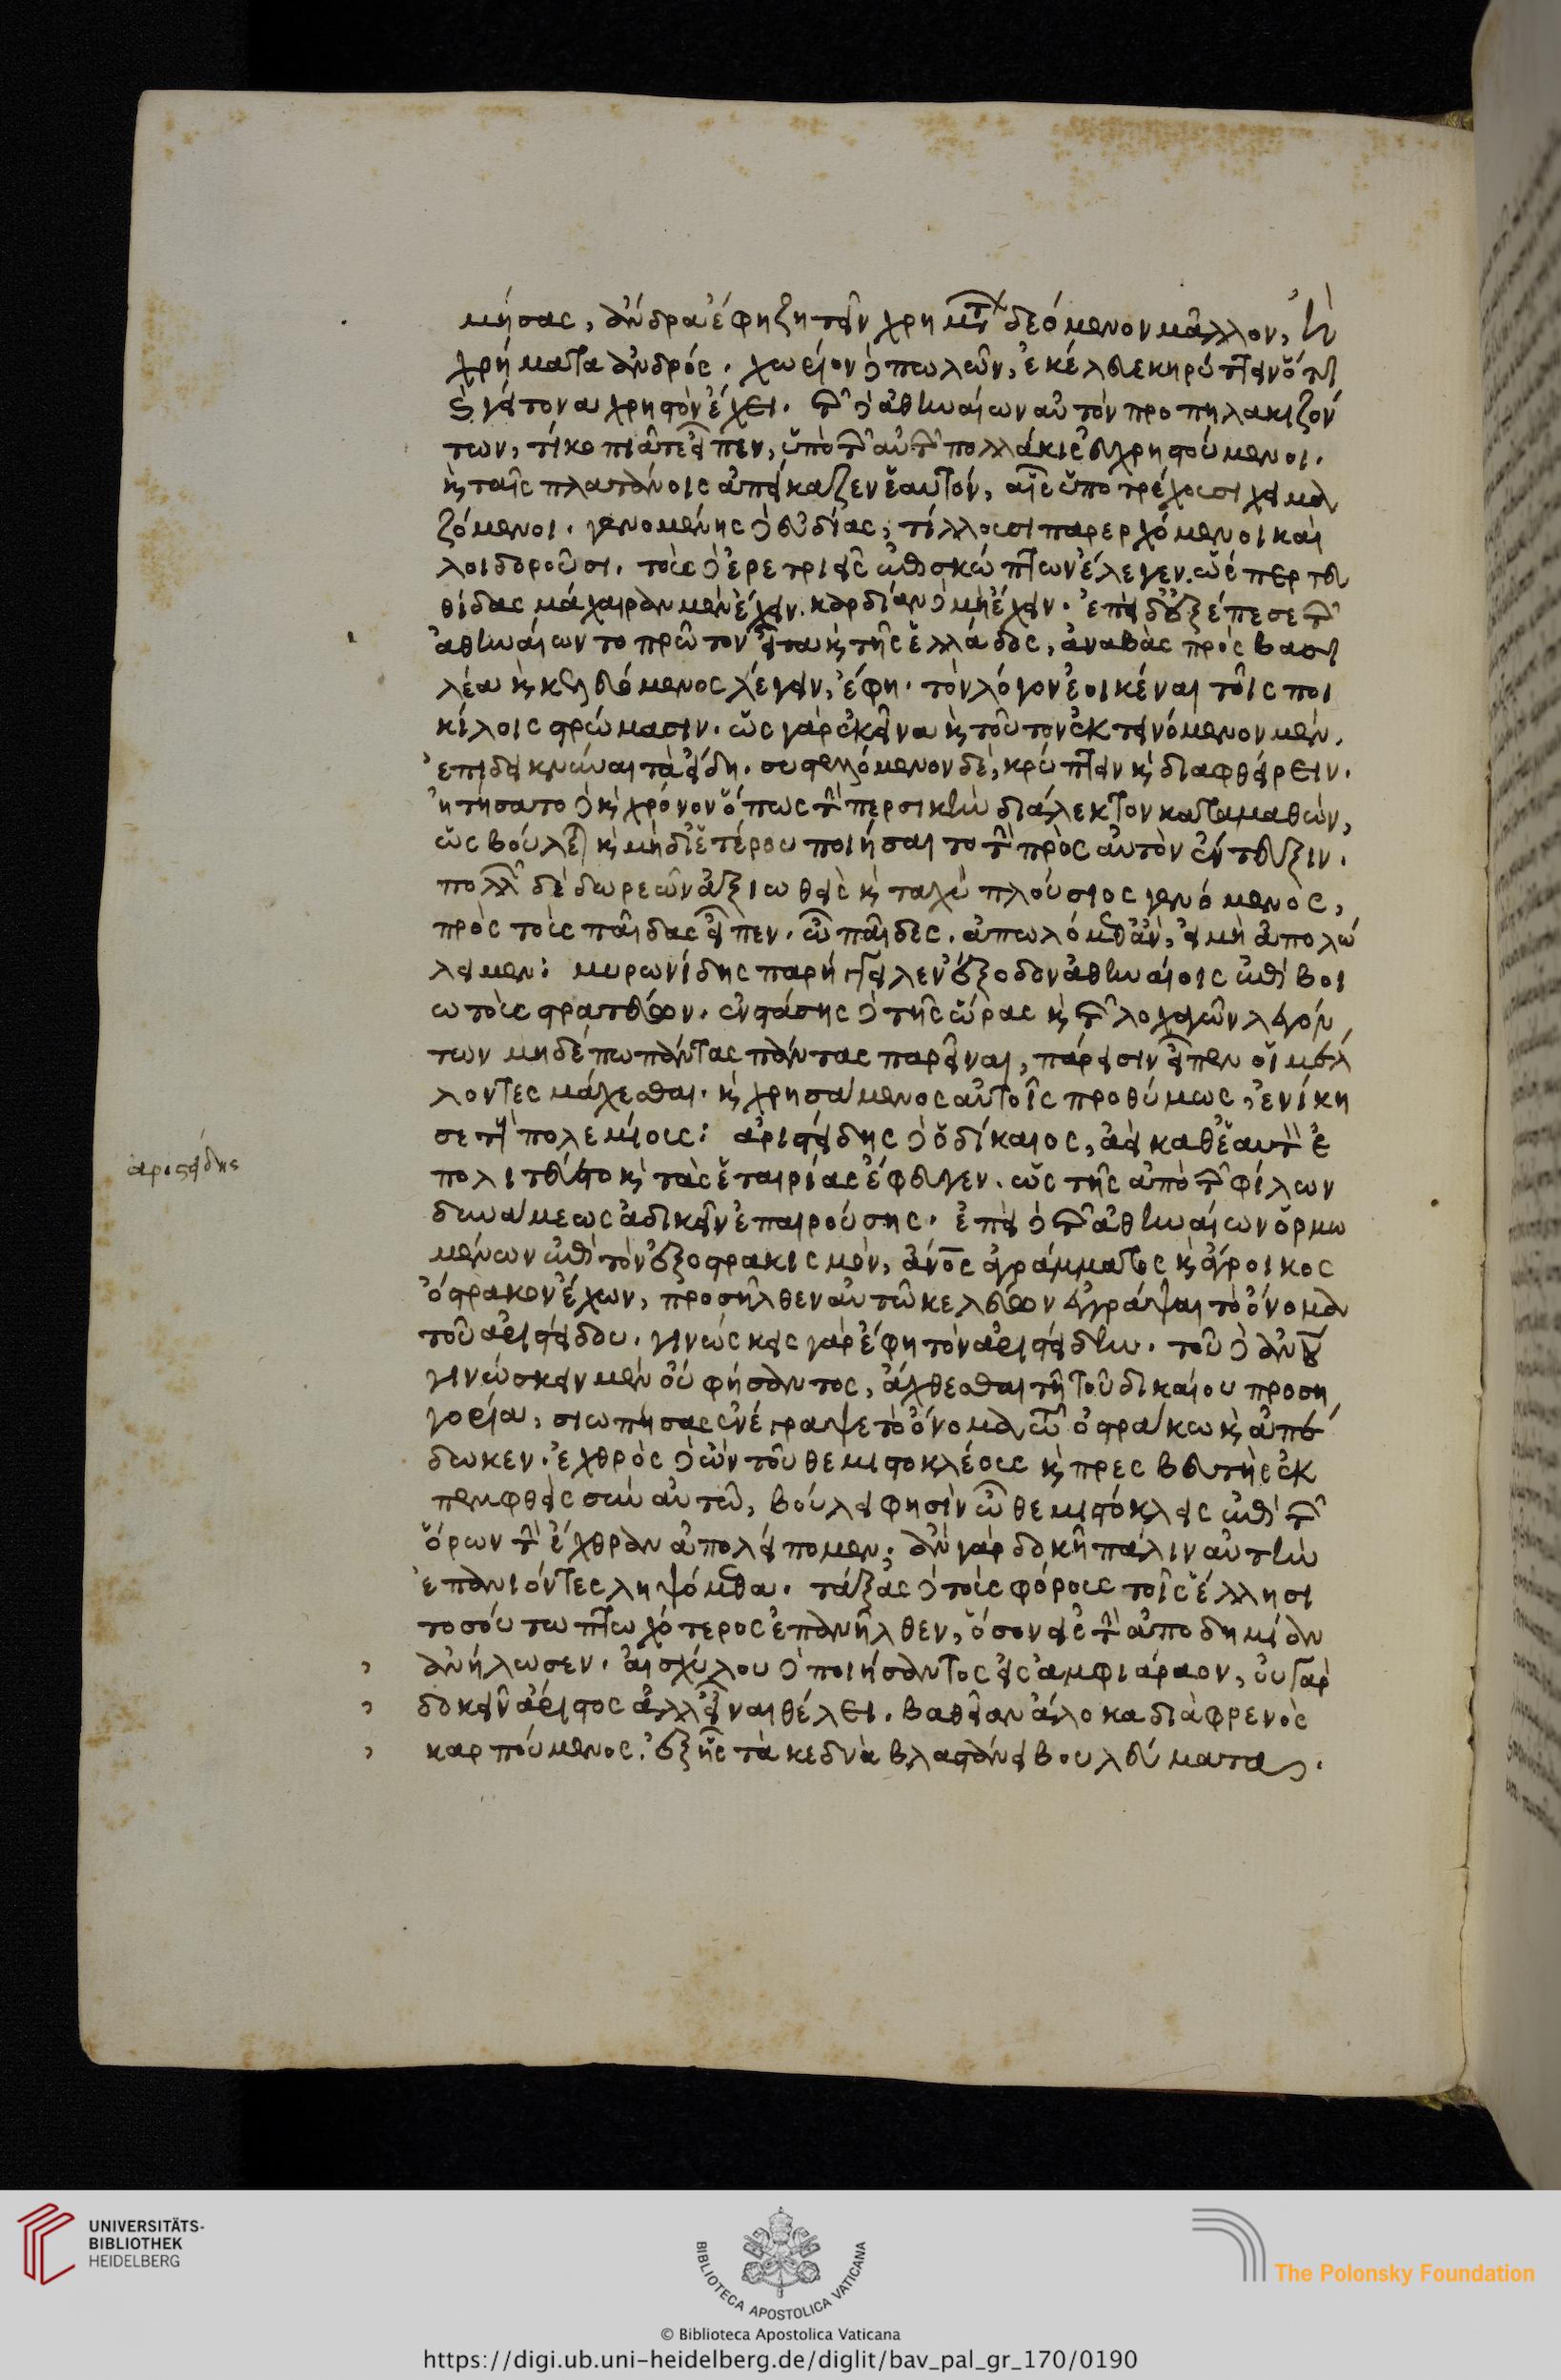 μήσας, ἄνδρα ἔφη ζητεῖν χρημάτων δεόμενον μᾶλλον, ἢ
χρήματα ἀνδρός. χωρίον δὲ πωλῶν, ἐκέλευε κηρύττειν ὅτι
καὶ γείτονα χρηστὸν ἔχει. τῶν δὲ ἀθηναίων αὐτὸν προπηλακιζόν
των, τί κοπιᾶτε εἶπεν, ὑπὸ τῶν αὐτῶν πολλάκις εὐχρηστούμενοι.
καὶ ταῖς πλατάνοις ἀπείκαζεν ἑαυτόν, αἷς ὑποτρέχουσι χειμα
ζόμενοι. γενομένης δὲ εὐδίας, τίλλουσι παρερχόμενοι καὶ
λοιδοροῦσι. τοὺς δὲ ἐρετριεῖς ἐπισκώπτων ἔλεγεν. ὥσπερ τευ
θίδας μάχαιραν μὲν ἔχειν. καρδίαν δὲ μὴ ἔχειν. ἐπεὶ δὲ ἐξέπεσε τῶν
ἀθηναίων το πρῶτον εἶτα καὶ τῆς ἑλλάδος, ἀναβὰς πρὸς βασι
λέα καὶ κελευόμενος λέγειν, ἔφη. τὸν λόγον ἐοικέναι τοῖς ποι
κίλοις στρώμασιν. ὡς γὰρ ἐκεῖνα καὶ τοῦτον ἐκτεινόμενον μὲν,
ἐπιδεικνύναι τὰ εἴδη. συστελλόμενον δὲ, κρύπτειν καὶ διαφθείρειν.
ἠτήσατο δὲ καὶ χρόνον ὅπως τὴν περσικὴν διάλεκτον καταμαθὼν,
ὡς βούλεται καὶ μὴ δι' ἑτέρου ποιήσαιτο τὴν πρὸς αὐτὸν ἔντευξιν.
πολλῶν δὲ δωρεῶν ἀξιωθεὶς καὶ ταχὺ πλούσιος γενόμενος,
πρὸς τοὺς παῖδας εἶπεν. ὦ παῖδες. ἀπωλόμεθα ἂν, εἰ μὴ ἀπολώ
λειμεν: μυρωνίδης παρήγγειλεν ἔξοδον ἀθηναίοις ἐπὶ βοι
ωτοὺς στρατεύων. ἐνστάσης δὲ τῆς ὥρας καὶ τῶν λοχαγῶν λεγόν
των μηδέπω πάντας πάντας παρεῖναι, πάρεισιν εἶπεν οἱ μέλ
λοντες μάχεσθαι. καὶ χρησάμενος αὐτοῖς προθύμως, ἐνίκη
σε τοὺς πολεμίους: ἀριστείδης δὲ ὁ δίκαιος, ἀεὶ καθ' ἑαυτὸν ἐ
αριστείδης
πολιτεύετο καὶ τὰς ἑταιρίας ἔφευγεν. ὡς τῆς ἀπὸ τῶν φίλων
δυνάμεως ἀδικεῖν ἐπαιρούσης. ἐπεὶ δὲ τῶν ἀθηναίων ὁρμω
μένων ἐπὶ τὸν ἐξοστρακισμὸν, ἄνος ἀγράμματος καὶ ἄγροικος
ὄστρακον ἔχων, προσῆλθεν αὐτῶ κελεύων ἐγγράψαι τὸ ὄνομα
τοῦ ἀριστείδου. γινώσκεις γὰρ ἔφη τὸν ἀριστείδην. τοῦ δὲ ἀνου
γινώσκειν μὲν οὐ φήσαντος, ἄχθεσθαι τῆ τοῦ δικαίου προση
γορία, σιωπήσας ἐνέγραψε τὸ ὄνομα τῶ ὀστράκω καὶ ἀπέ
δωκεν. ἐχθρὸς δὲ ὢν τοῦ θεμιστοκλέους καὶ πρεσβευτὴς ἐκ
πεμφθεὶς σὺν αὐτῶ, βούλει φησὶν ὦ θεμιστόκλεις ἐπὶ τῶν
ὅρων τὴν ἔχθραν ἀπολείπομεν; ἂν γὰρ δοκῆ πάλιν αὐτὴν
ἐπανιόντες ληψόμεθα. τάξας δὲ τοὺς φόρους τοῖς ἕλλησι
τοσούτω πτωχότερος ἐπανῆλθεν, ὅσον εἰς τὴν ἀποδημίαν
ἀνήλωσεν. αἰσχύλου δὲ ποιήσαντος εἰς ἀμφιάραον, οὐ γὰρ
δοκεῖν ἄριστος ἀλλ' εἶναι θέλει. βαθεῖαν ἄλοκα διὰ φρενὸς
καρπούμενος. ἐξ ἧς τὰ κεδνὰ βλαστάνει βουλεύματα.
UNIVERSITÄTS-
BIBLIOTHEK
HEIDELBERG
BIBLIOTECA APOSTOLICA VATICANA
The Polonsky Foundation
© Biblioteca Apostolica Vaticana
https://digi.ub.uni-heidelberg.de/diglit/bav_pal_gr_170/0190